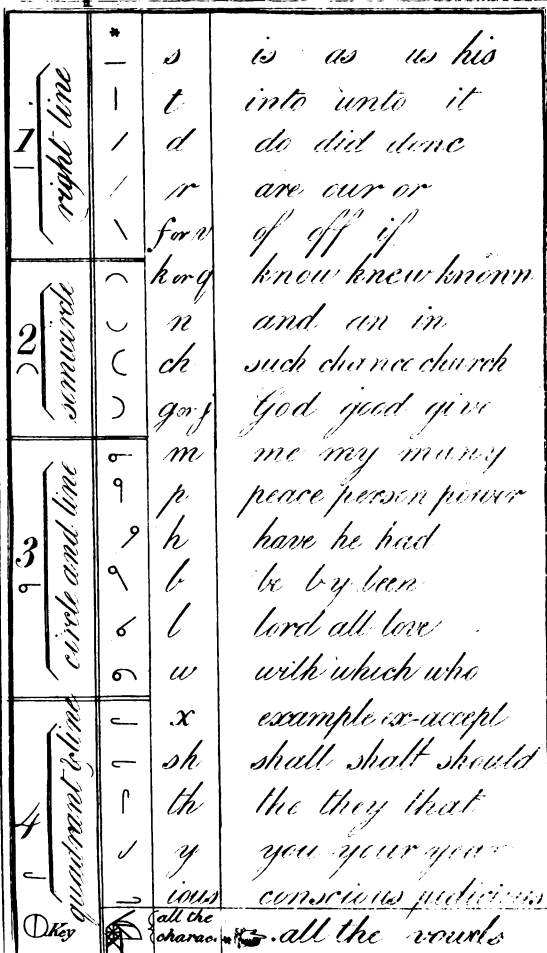 1 right line
s is as us his
t into unto it
d do did done
r are our or
f or v of off if
2 semicircle
k or q know knew known
n and an in
ch such chance church
g or j God good give
3 circle and line
m me my many
p peace person power
h have he had
b be by been
l lord all love
w with which who
4 quadrant & line
x example ex-accept
sh shall shalt should
th the they that
y you your year
ious conscious judicious
Key all the charac. all the vowels